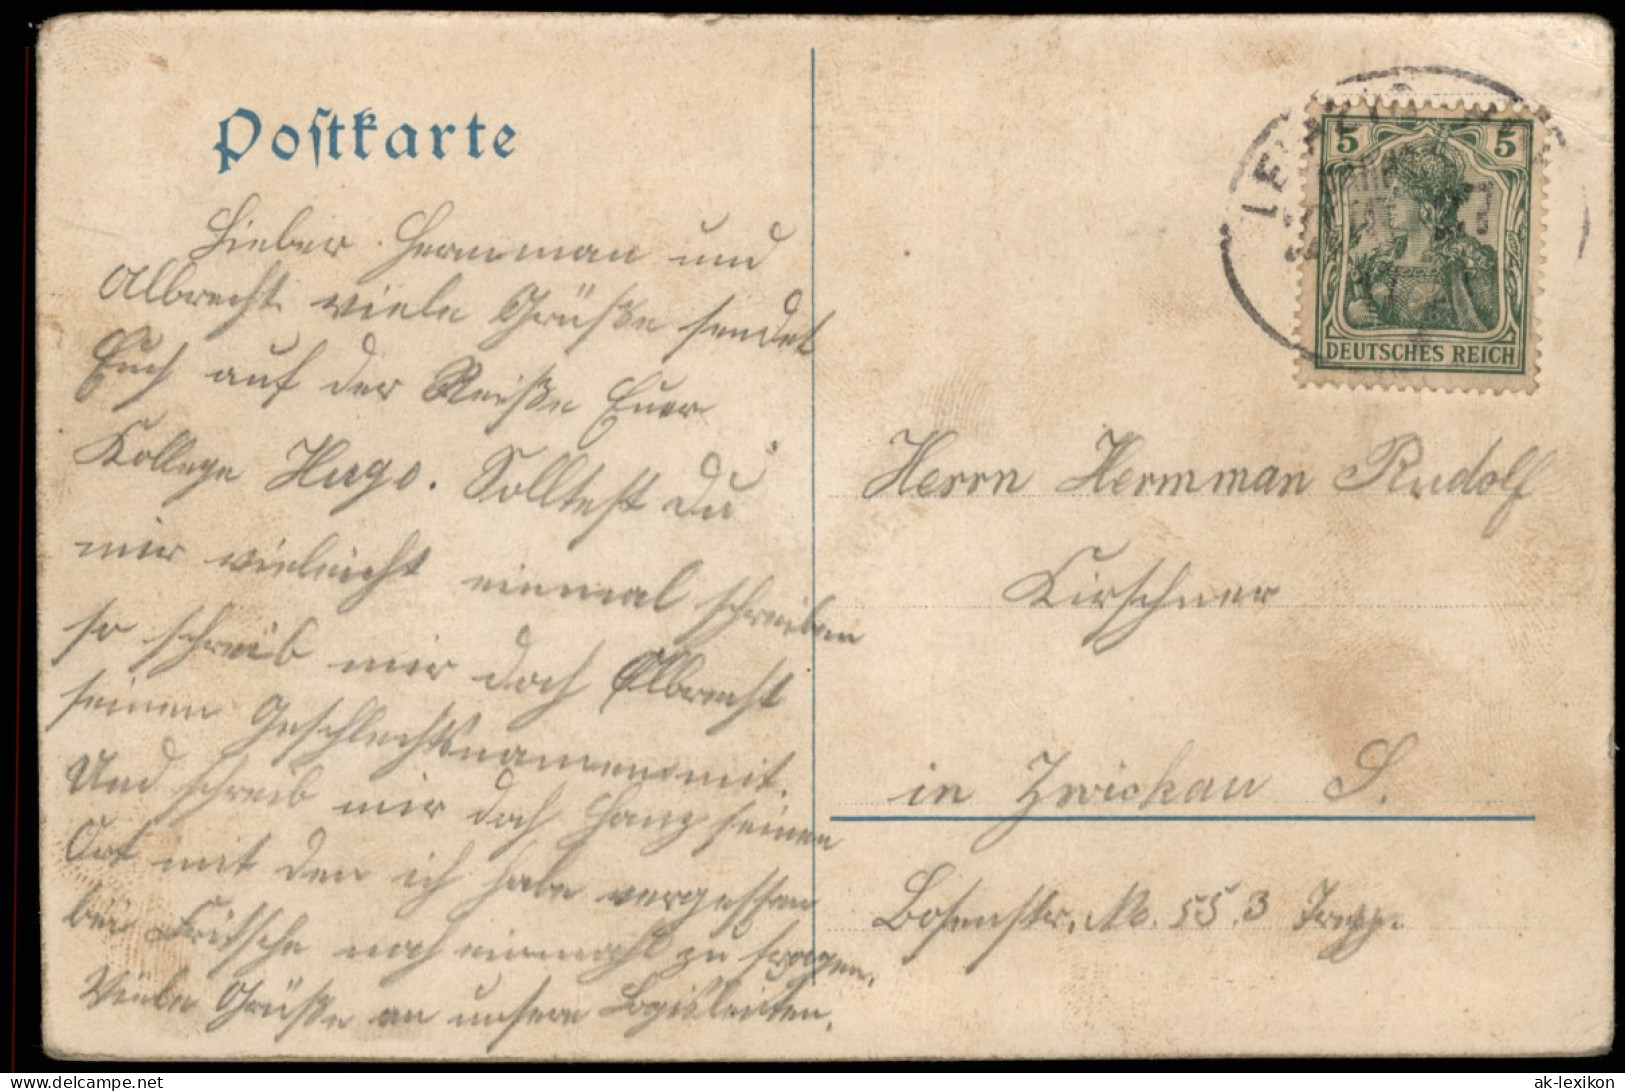 Postkarte
Lieber Hermman und
Albrecht viele Grüße sendet
Euch auf der Reiße Euer
Kollege Hugo. Solltest Du
mir vieleicht einmal schreiben
so schreib mir doch Albrecht
seinen Geschlechtsnamen mit.
Und schreib mir doch Hanz seinen
Ort mit den ich habe vergessen
bei Fritsche noch einmahl zu fragen.
Viele Grüße an unsere Logisleuten.
5 5
DEUTSCHES REICH
Herrn Hermman Rudolf
Kirschner
in Zwickau S.
No. 55. 3 Trepp.
delcampe.net
ak-lexikon